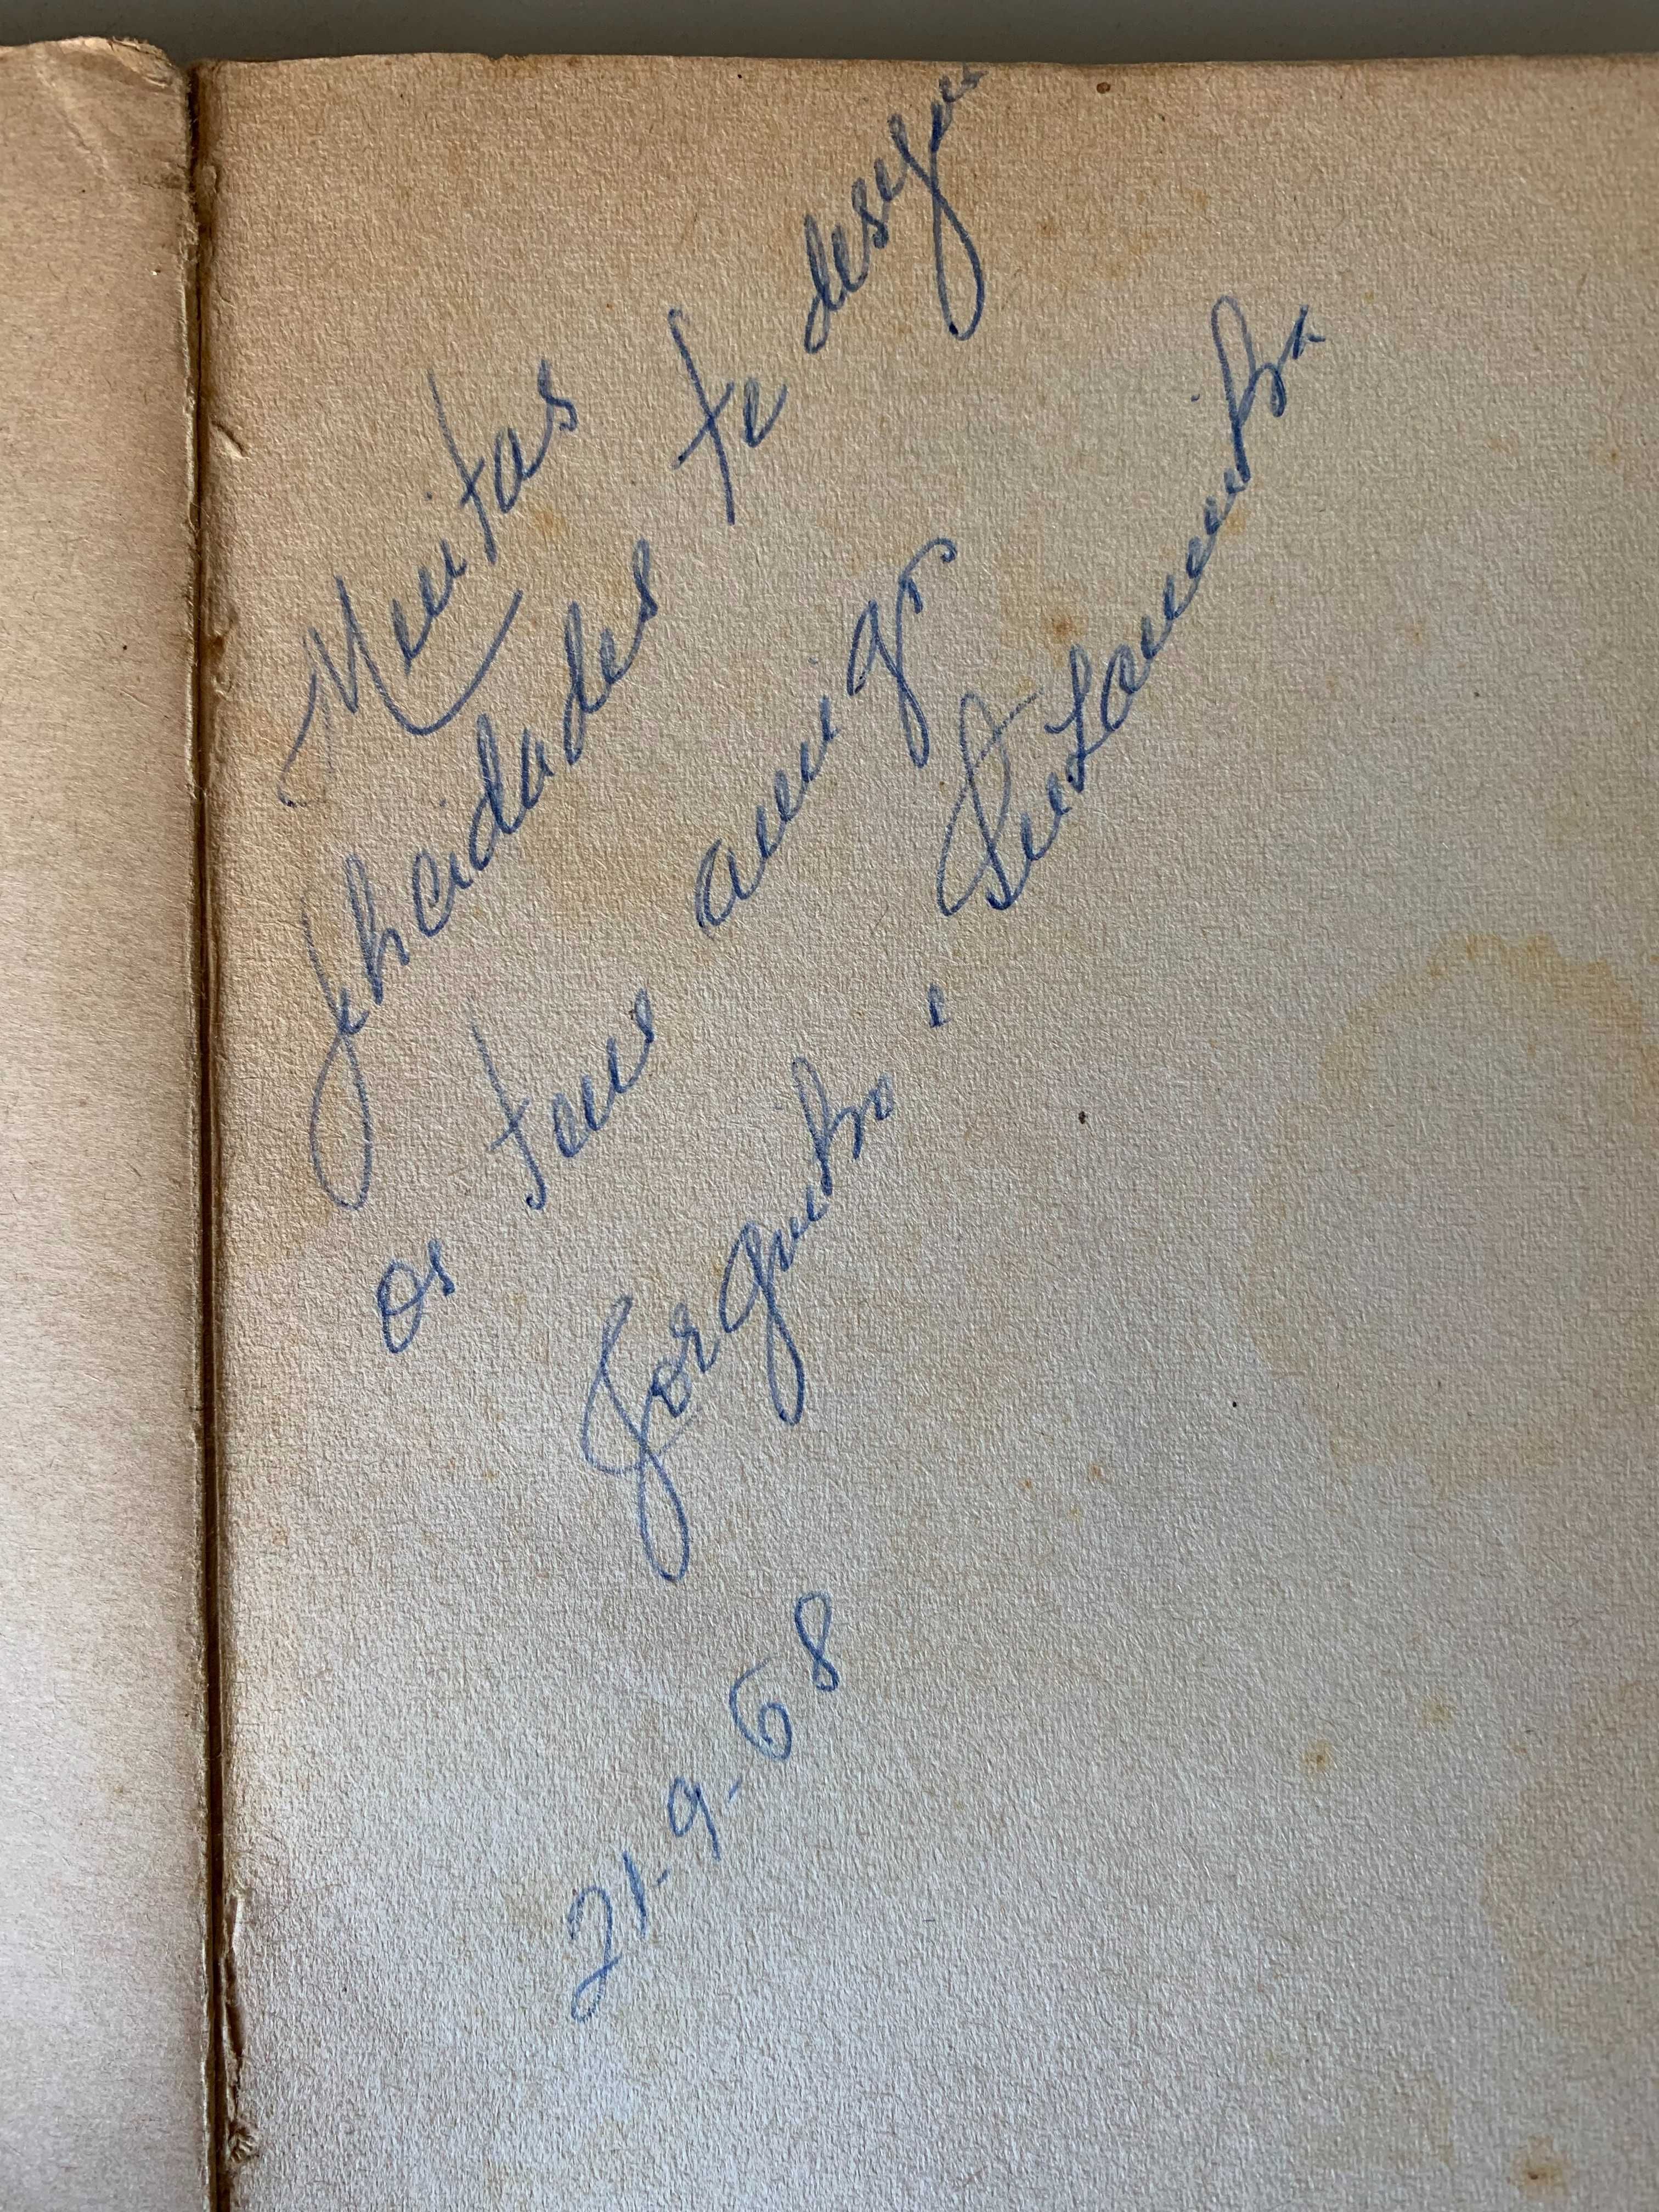 Muitas
felicidades te desejam
os teus amigos
Jorginho e Suzaninha
21-9-68